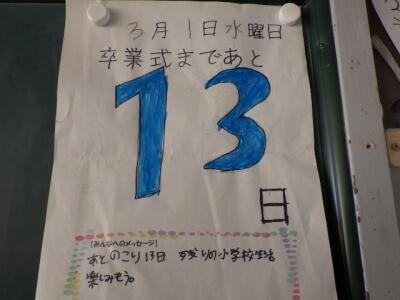 3月1日水曜日
卒業式まであと
13
日
[みんなへのメッセージ]
あとのこり13日 残りの小学校生活
楽しみそう